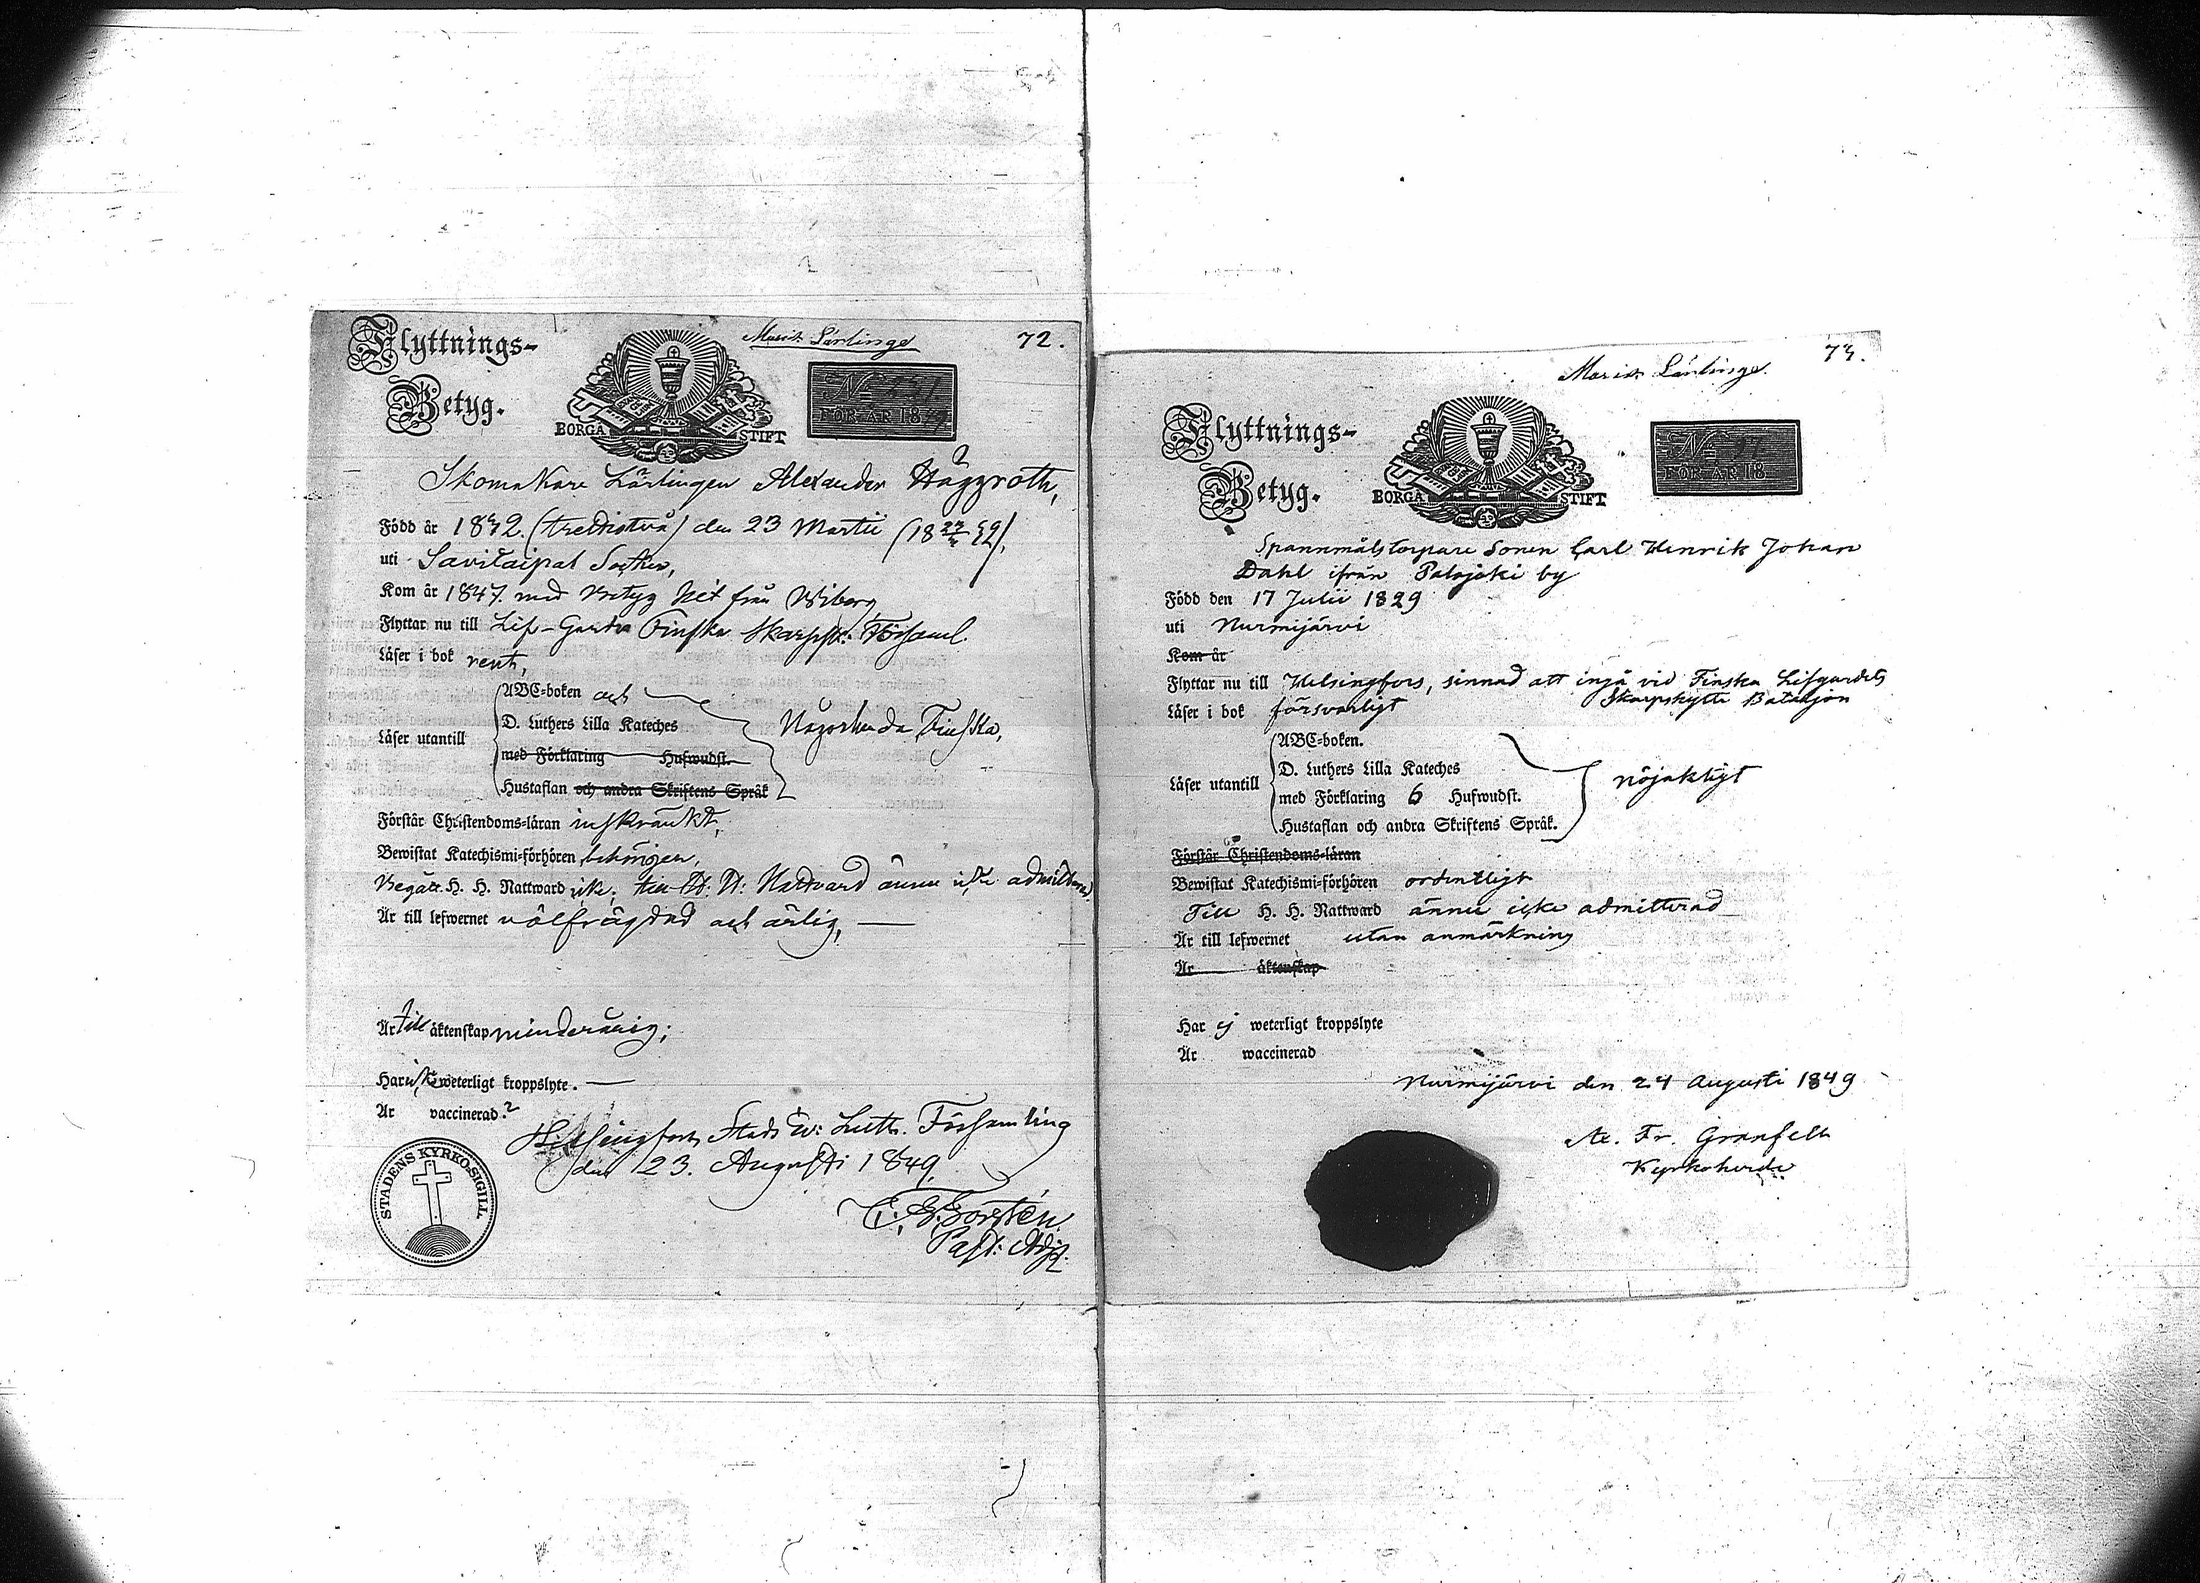 Flyttnings-
Betyg.
BORGÅ STIFT
Musik Lärlinge
72.
No
FÖR ÅR 18
Skomakare Lärlingen Alexander Häggroth,
Född år 1832. (trediotvå) den 23 Martii (18 23/3 32).
uti Savitaipal Socken,
Kom år 1847. med Betyg hit från Wiborg,
Flyttar nu till Lif-Gardes Finska Skarpsk: Församl.
Läser i bok rent,
Läser utantill
ABC-boken och
D. Luthers Lilla Kateches
med Förklaring Hufwudst.
Hustaflan och andra Skriftens Språk
Någorlunda, Finska,
Förstår Christendoms-läran inskränkt,
Bewistat Katechismi-förhören behörigen,
Begått H. H. Nattward ick: till H: H: Nattvard ännu icke admitterad,
Är till lefwernet välfrägdad och ärlig,
Är till äktenskap minderårig;
Har icke weterligt kroppslyte.
Är vaccinerad?
Helsingfors Stads Ev: Luth. Församling
den 23. Augusti 1849.
STADENS KYRKO-SIGILL
Past: Adj.
73.
Musik Lärlinge.
Flyttnings-
Betyg.
BORGÅ STIFT
No 97
FÖR ÅR 18
Spannmåls torpare Sonen Carl Henrik Johan
Dahl ifrån Palojoki by
Född den 17 Julii 1829
uti Nurmijärvi
Kom år
Flyttar nu till Helsingfors, sinnad att ingå vid Finska Lifgardets
Skarpskytte Bataljon
Läser i bok försvarligt
Läser utantill
ABC-boken.
D. Luthers Lilla Kateches
med Förklaring 6 Hufwudst.
Hustaflan och andra Skriftens Språk.
nöjaktigt
Förstår Christendoms-läran
Bewistat Katechismi-förhören ordentligt
Till H. H. Nattward ännu icke admitterad
Är till lefwernet utan anmärkning
Är äktenskap
Har ej weterligt kroppslyte
Är waccinerad
Nurmijärvi den 24 Augusti 1849
Ad. Fr. Granfelt
Kyrkoherde